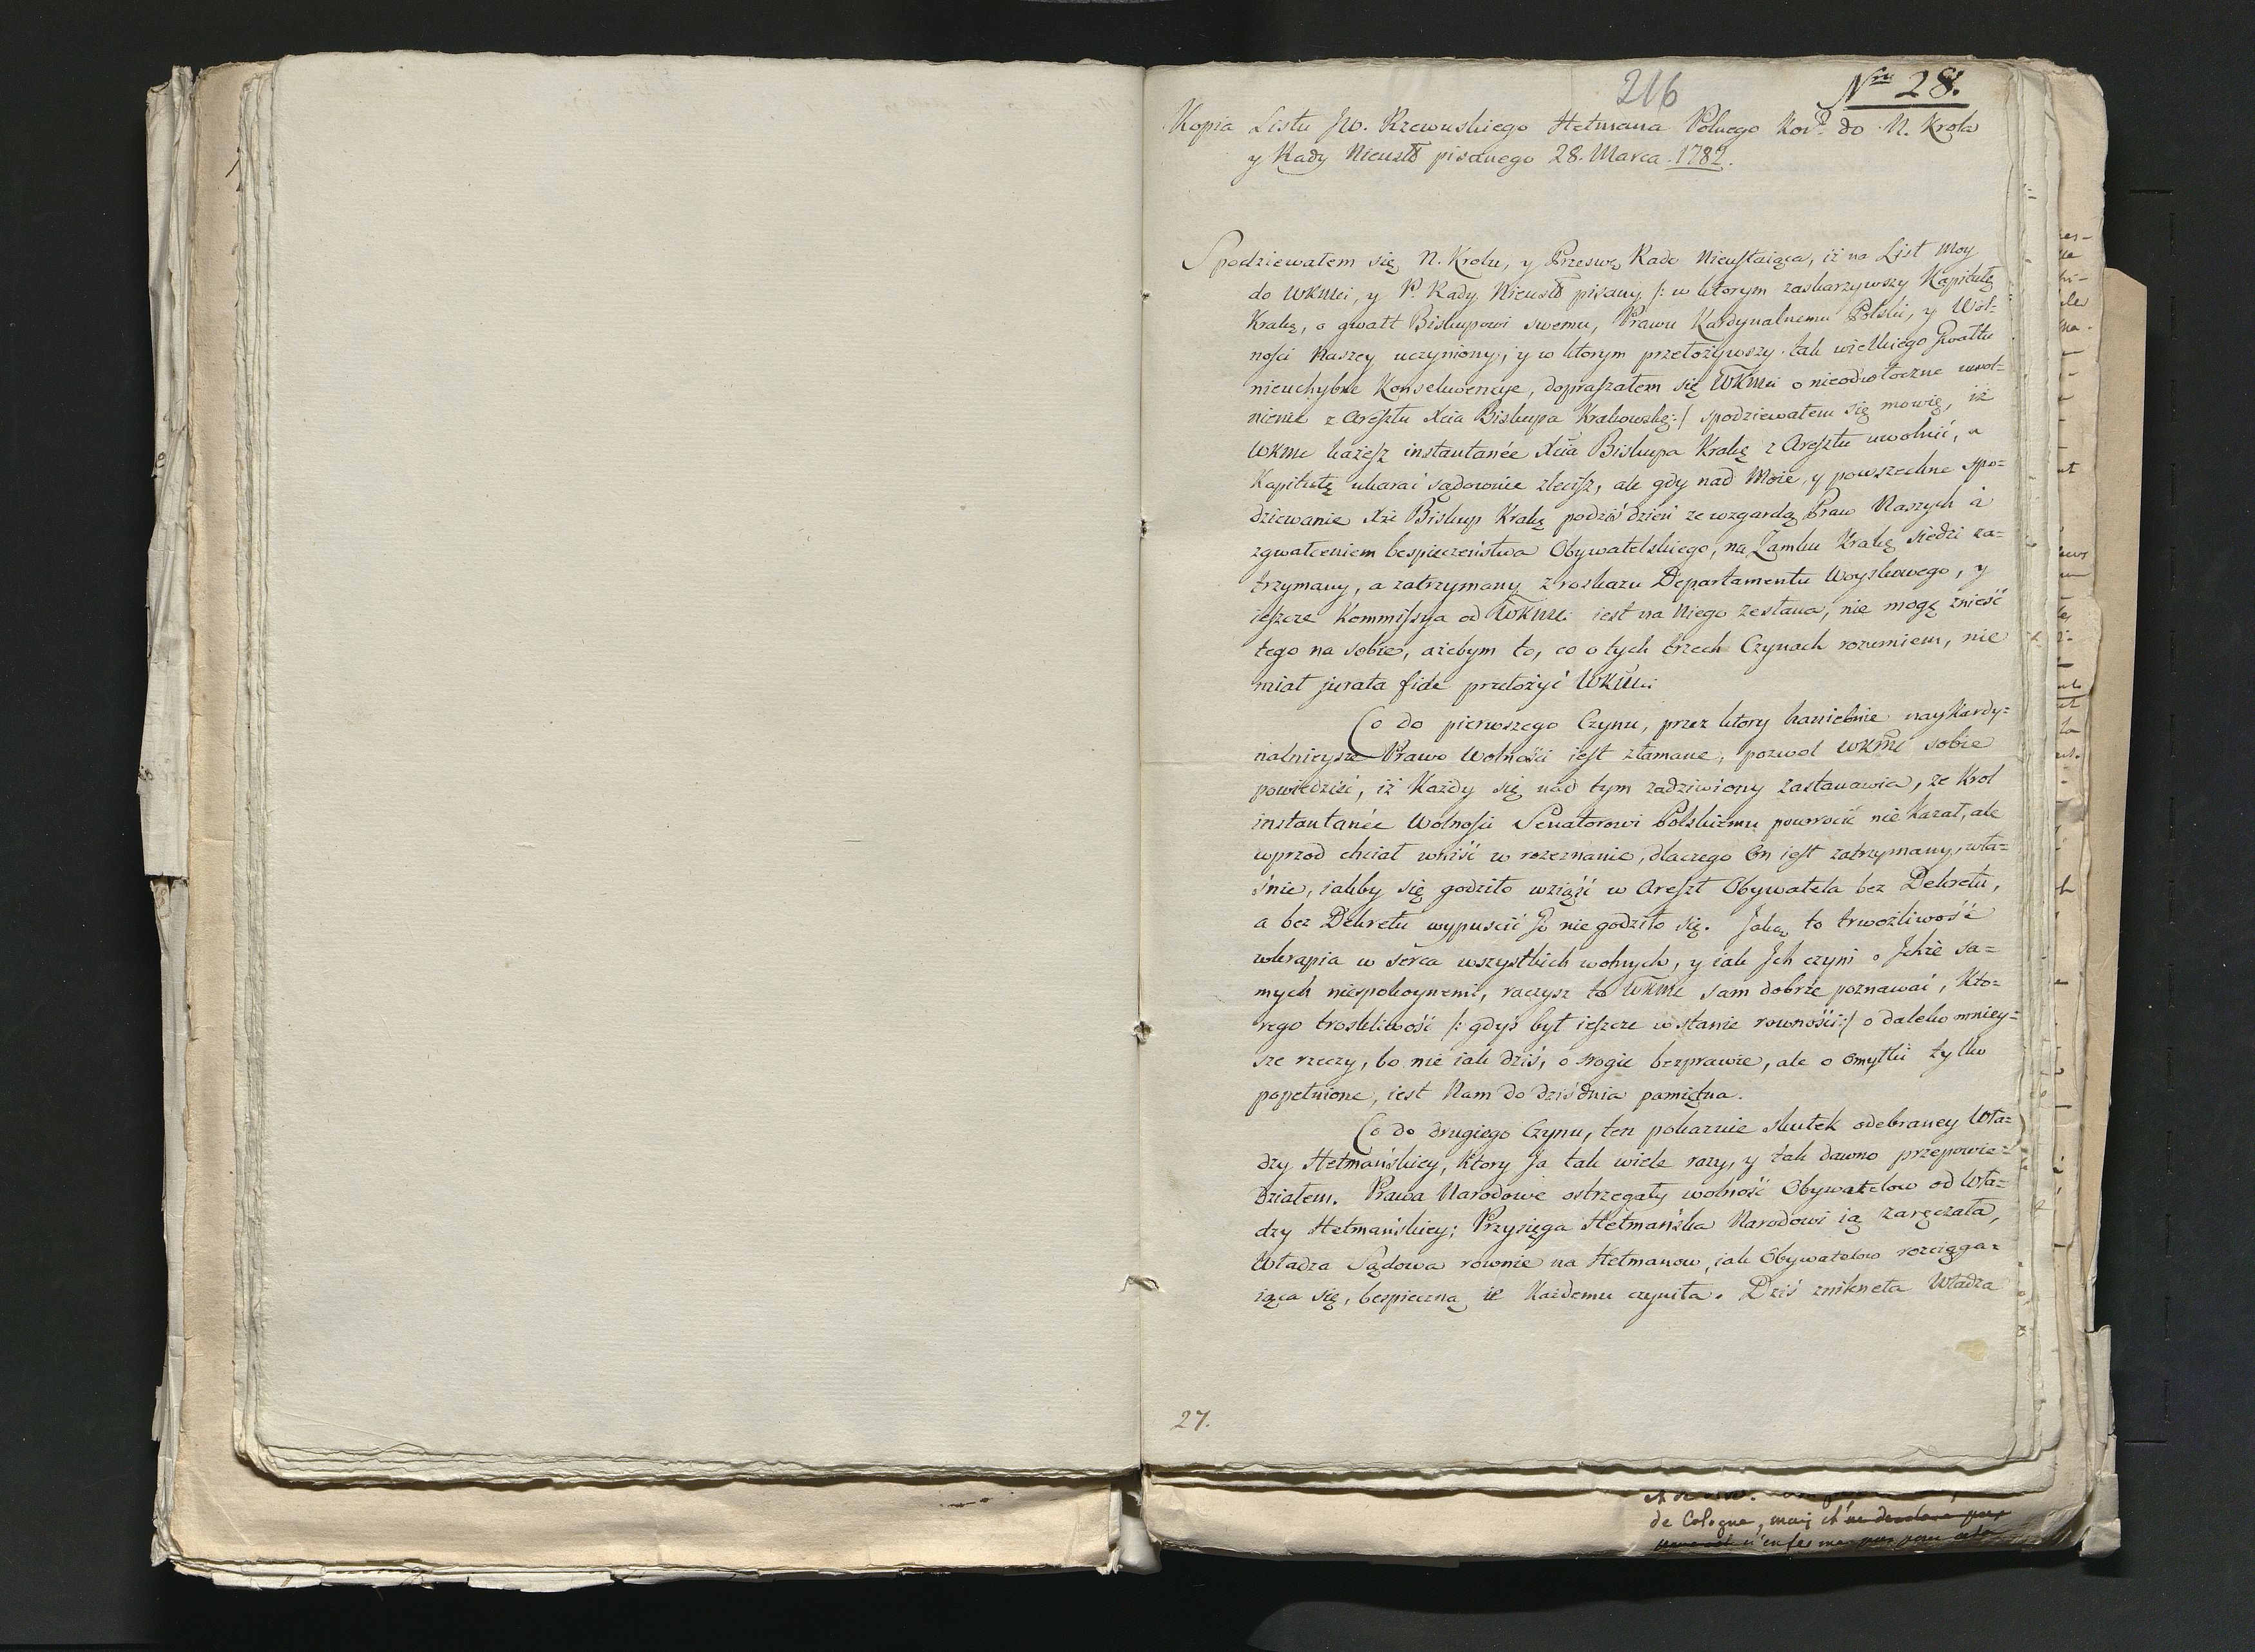 216
Nro 28.
Kopia Listu JW. Rzewuskiego Hetmana Polnego Kor. do N. Krola
y Rady Nieustt pisanego 28. Marca. 1782.
Spodziewałem się N. Krolu, y Przesw. Rado Nieustaiąca, iż na List moy
do WKMci, y P. Rady Nieustt pisany /: w ktorym zaskarzywszy Kapitułę
Krakg, o gwałt Biskupowi swemu, Prawu Kardynalnemu Polski, y Wol=
ności Naszey uczyniony; y w ktorym przełożywszy tak wielkiego Gwałtu
nieuchybne Konsekwencye, dopraszałem się WKMci o nieodwłoczne uwol=
nienie z Aresztu Xcia Biskupa Krakowskg :/ spodziewałem się mowię, iż
WKMć każesz instantanée Xcia Biskupa Krakg z Aresztu uwolnić, a
Kapitułę ukarać sądownie zlecisz, ale gdy nad Moie, y powszechne spo=
dziewanie Xże Biskup Krakg podziś dzień ze wzgardą Praw Naszych a
zgwałceniem bespieczeństwa Obywatelskiego, na Zamku Krakg siedzi za=
trzymany, a zatrzymany z roskazu Departamentu Woyskowego, y
ieszcze Kommissya od WKMci iest na Niego zesłana, nie mogę znieść
tego na sobie, ażebym to, co o tych trzech Czynach rozumiem, nie
miał jurata fide przełożyć WKMci
Co do pierwszego Czynu, przez ktory haniebnie naykardy=
nalnieysze Prawo Wolności iest złamane, pozwol WKMć sobie
powiedzieć, iż Każdy się nad tym zadziwiony zastanawia, że Krol
instantanée Wolności Senatorowi Polskiemu powrocić nie kazał, ale
wprzod chciał wniść w rozeznanie, dlaczego On iest zatrzymany, wła=
śnie, iakby się godziło wziąść w Areszt Obywatela bez Dekretu,
a bez Dekretu wypuscić Go nie godziło się. Jaką to trwożliwość
wkrapia w serca wszystkich wolnych, y iak Jch czyni o Jchże sa=
mych niespokoynemi, raczysz to WKMć sam dobrze poznawać, Kto=
rego troskliwość /: gdyś był ieszcze w stanie rowności :/ o daleko mniey=
sze rzeczy, bo nie iak dziś, o srogie bezprawie, ale o omyłki tylko
popełnione, iest Nam do dziś dnia pamiętna.
Co do drugiego Czynu, ten pokazuie skutek odebraney Wła=
dzy Hetmańskiey, ktory Ja tak wiele razy, y tak dawno przepowie=
działem. Prawa Narodowe ostrzegały wolność Obywatelow od Wła=
dzy Hetmańskiey; Przysięga Hetmańska Narodowi ią zaręczała,
Władza Sądowa rownie na Hetmanow, iak Obywatelow rozciąga=
iąca się, bespieczną ie Każdemu czyniła. Dziś znikneła Władza
27.
de Cologne, mais